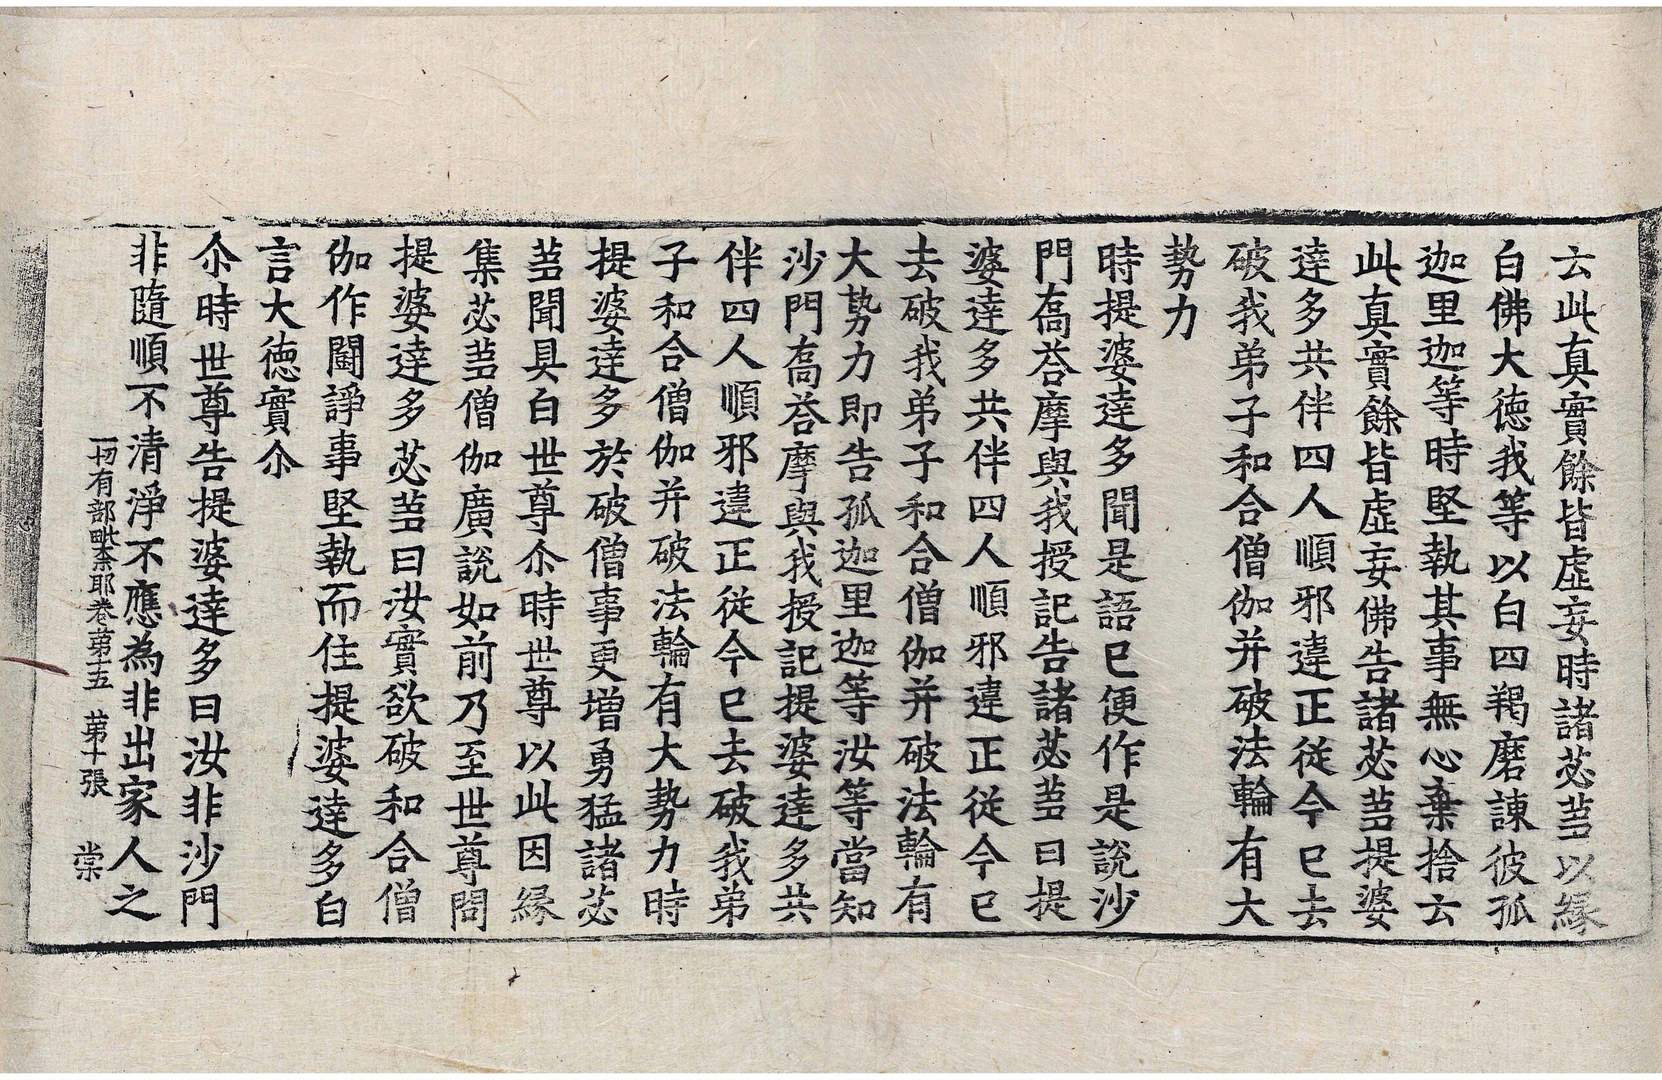 云此真實餘皆虛妄時諸苾蒭以縁
白佛大德我等以白四羯磨諫彼孤
迦里迦等時堅執其事無心棄捨云
此真實餘皆虛妄佛告諸苾蒭提婆
達多共伴四人順邪違正從今已去
破我弟子和合僧伽并破法輪有大
勢力
時提婆達多聞是語已便作是說沙
門喬荅摩與我授記告諸苾蒭曰提
婆達多共伴四人順邪違正從今已
去破我弟子和合僧伽并破法輪有
大勢力即告孤迦里迦等汝等當知
沙門喬荅摩與我授記提婆達多共
伴四人順邪違正從今已去破我弟
子和合僧伽并破法輪有大勢力時
提婆達多於破僧事更增勇猛諸苾
蒭聞具白世尊尒時世尊以此因縁
集苾蒭僧伽廣說如前乃至世尊問
提婆達多苾蒭曰汝實欲破和合僧
伽作鬪諍事堅執而住提婆達多白
言大德實尒
尒時世尊告提婆達多曰汝非沙門
非隨順不清淨不應為非出家人之
一切有部毗柰耶卷第十五　第十張　棠